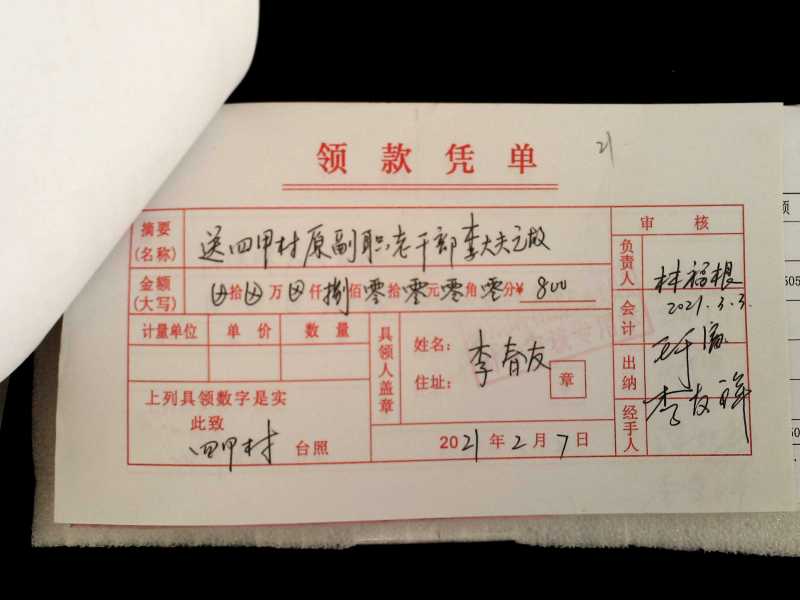 领款凭单
21
摘要(名称) 送四甲村原副职老干部李大夫亡故
金额(大写) 拾 万 仟 捌 佰 零 拾 零 元 零 角 零 分 ¥ 800
计量单位 单价 数量
上列具领数字是实
此致
四甲村 台照
具领人盖章
姓名: 李春友
住址:
章
2021年2月7日
审核
负责人 林福根
2021.3.3.
会计
出纳
经手人 李友祥